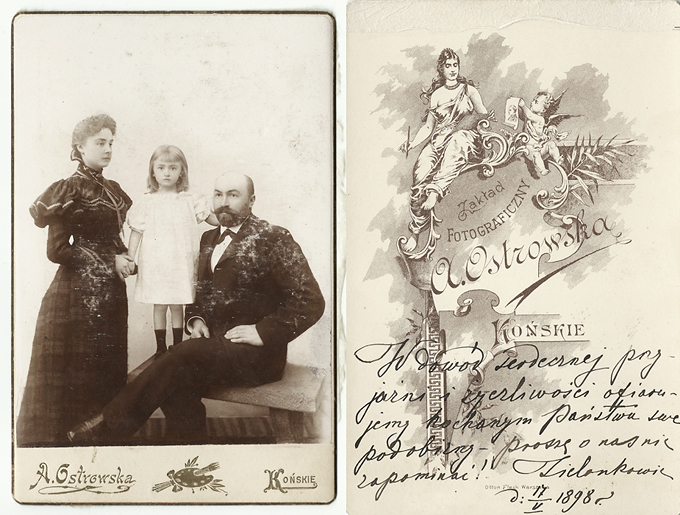 A. Ostrowska
Końskie
Zakład
FOTOGRAFICZNY
A. Ostrowska
KOŃSKIE
W dowód serdecznej przy-
jaźni i życzliwości ofiaru-
jemy kochanym Państwu swe
podobizny - proszę o nas nie
zapominać! Zielonkowie
d: 17/V 1898 r